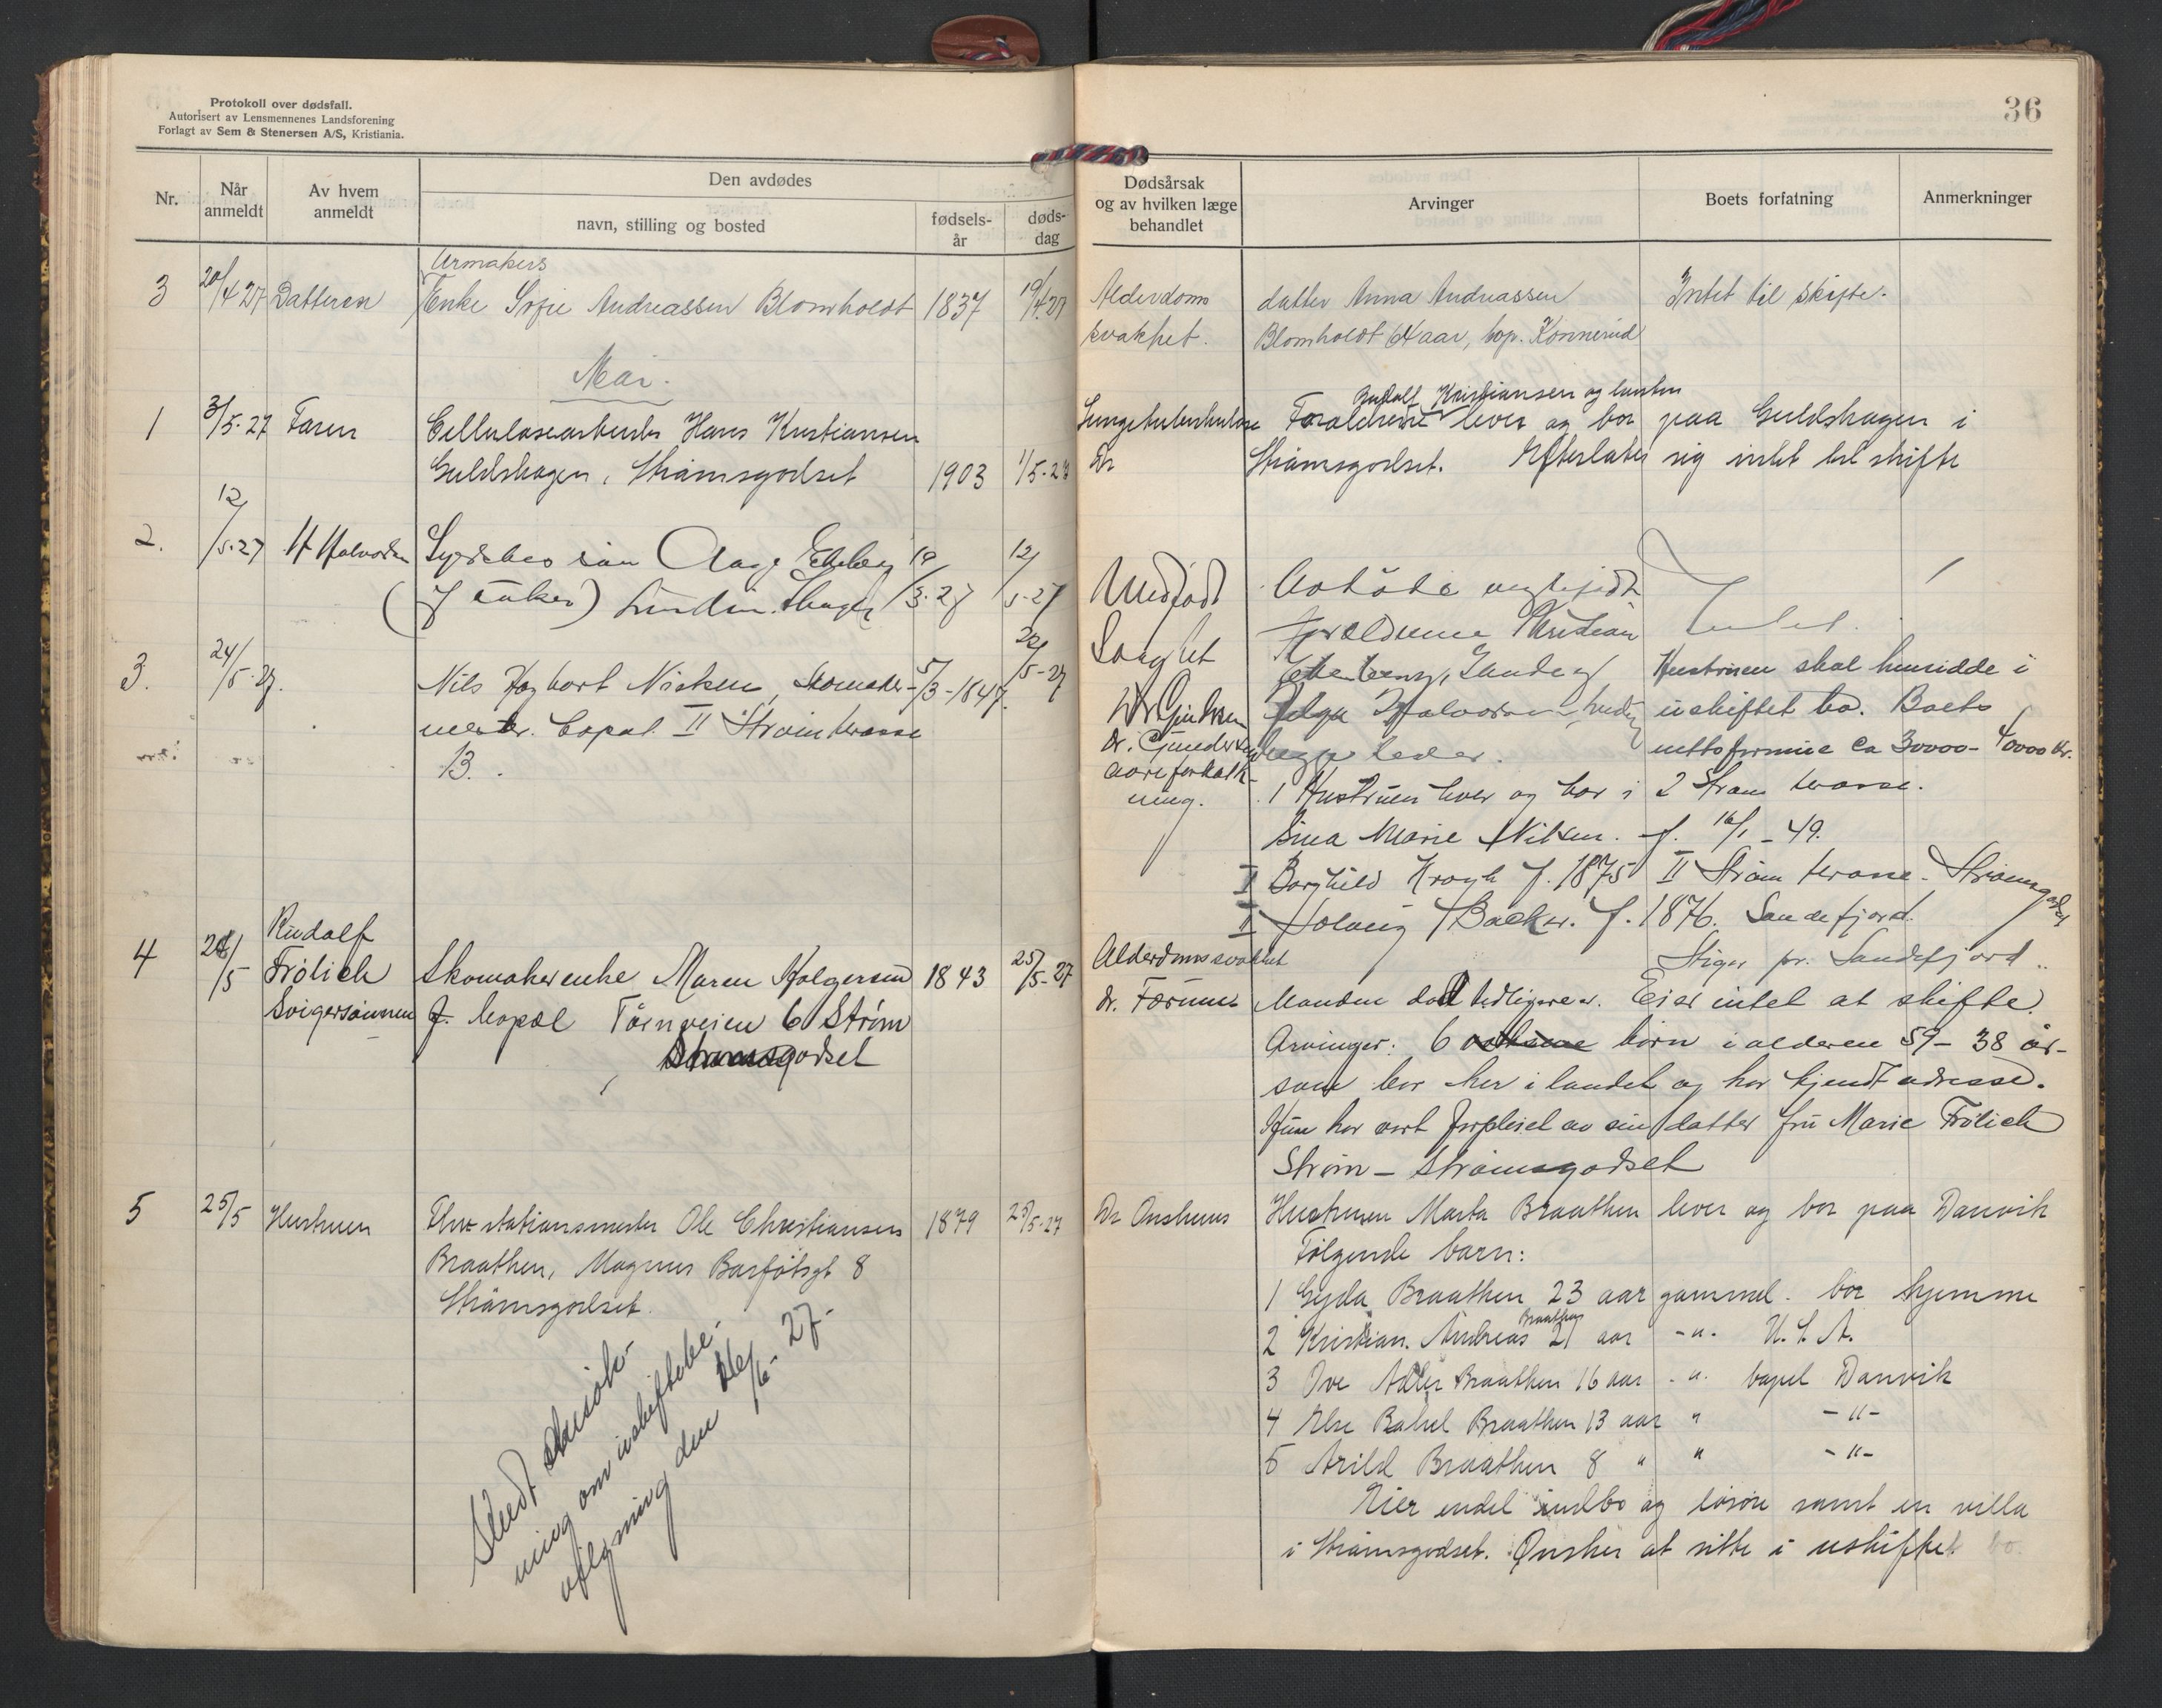 Protokoll over dødsfall.
Autorisert av Lensmennenes Landsforening
Forlagt av Sem & Stenersen A/S, Kristiania.
36
Nr.
Når anmeldt
Av hvem anmeldt
Den avdødes
navn, stilling og bosted
fødsels-år
døds-dag
Dødsårsak og av hvilken læge behandlet
Arvinger
Boets forfatning
Anmerkninger
3 20/4 27 Datteren
Urmakers
Enke Sofie Andreassen Blomholdt 1837 19/4.27
Alderdoms
svakhet.
datter Anna Andreassen
Blomholdt 64 aar, bop. Konnerud
Intet til skifte.
Mai.
1 3/5-27 Faren
Cellulosearbeider Hans Kristiansen
Guldskogen, Strømsgodset 1903 1/5-27
Lungetuberkulose
Dr
Rudolf Kristiansen og hustru
Forældrene lever og bor paa Guldskogen i
Strømsgodset. Efterlater sig intet til skifte
2. 12/5-27 H Halvorsen
søn Aage
12/5-27
Medfødt
Svaghet
Forældrene Kristian
Intet.
3. 24/5-27.
Nils Hagbart Nilsen, Skomaker- 5/3-1847. 22/5-27
mester. Bopæl II Strømterasse
13.
dr. Gundersen
aareforkalk-
ning.
begge leder.
Hustruen skal hensidde i
uskiftet bo. Boets
nettoformue ca 30000-40000 kr.
1 Hustruen lever og bor i 2 Strøm terasse.
Sina Marie Nilsen. f. 16/1-49.
II Borghild Krogh f. 1875 II Strøm terasse - Strømsgodset
II Solveig Backer. f. 1876. Sandefjord.
pr. Sandefjord
4 26/5 Rudolf
Frølich
Svigersønnen
Skomakerenke Maren Holgersen 1843 25/5-27
f. bopæl Tørnveien 6 Strøm
Strømsgodset
Alderdomssvakhet
dr. Førum
Manden død tidligere. Eier intet at skifte.
Arvinger: 6 børn i alderen 59-38 år-
som bor her i landet og har kjendt adresse.
Hun har vært forpleiet av sin datter fru Marie Frølich
Strøm - Strømsgodset
5 25/5 Hustruen
Fhv stationsmester Ole Christiansen 1879 25/5-27
Braathen, Magnus Barføtsgt 8
Strømsgodset.
Dr
Hustruen Marta Braathen lever og bor paa Danvik
Følgende barn:
1 Gyda Braathen 23 aar gammel. bor hjemme
Braathen
2 Kristian. Andreas 21 aar -"- U.S.A.
3 Ove Adler Braathen 16 aar -"- bopel Danvik
4 Else Rakel Braathen 13 aar " -"-
5 Arild Braathen 8 " " -"-
Eier endel indbo og løsøre samt en villa
i Strømsgodset. Ønsker at sitte i uskiftet bo.
Stedt ansøk-
ning om uskiftebe-
vilgning den 16/6-27-